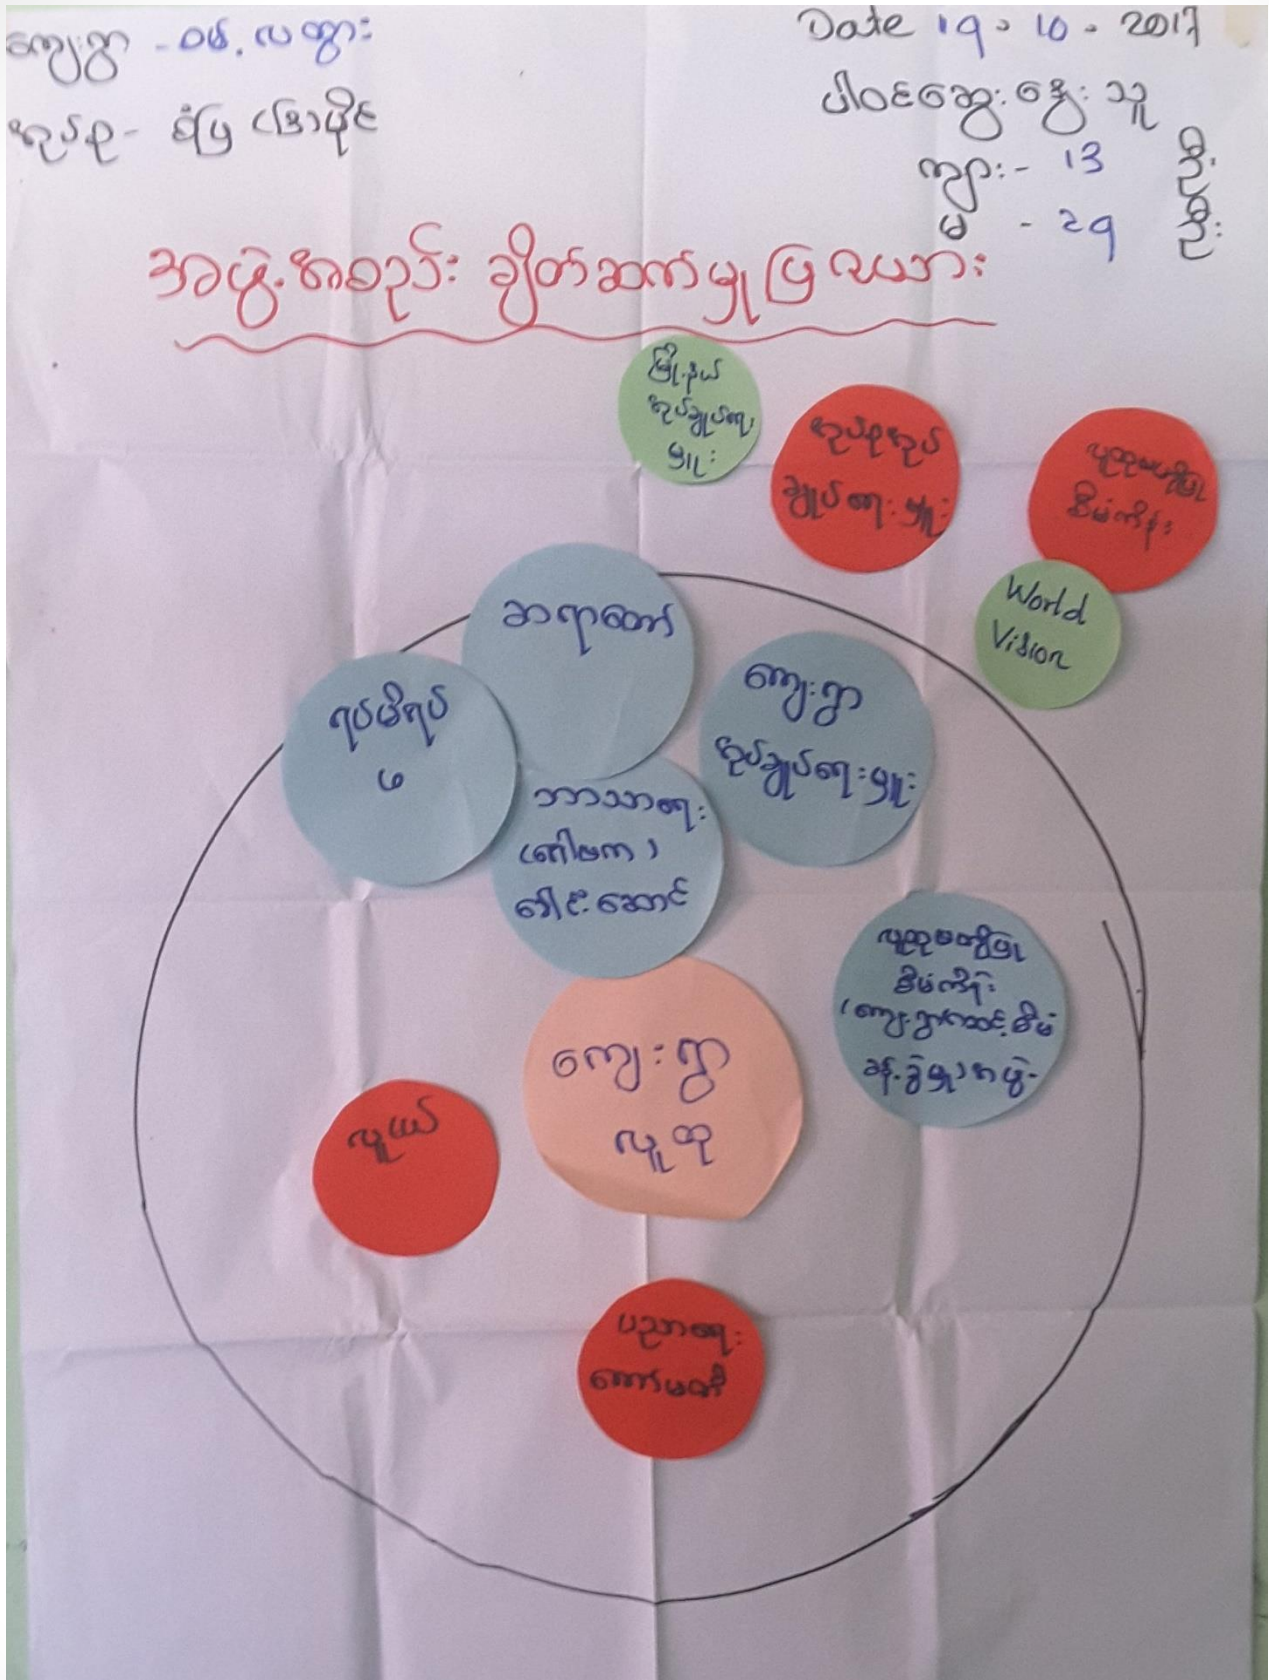 ကျေးရွာ -
အုပ်စု - စံပြ (ဒြာပိုင်
Date 19. 10. 2017
ပါဝင်ဆွေးနွေးသူ
ကျား - 13 ဦး
မ - 29 ဦး
အဖွဲ့အစည်း ချိတ်ဆက်မှုပြ ဇယား
မြို့နယ်
အုပ်ချုပ်ရေး
မှူး
အုပ်စုအုပ်
ချုပ်ရေးမှူး
လူထုဗဟိုပြု
စီမံကိန်း
World
Vision
ဆရာတော်
ရပ်မိရပ်
ဖ
ကျေးရွာ
အုပ်ချုပ်ရေးမှူး
ဘာသာရေး
(ဂေါပက)
ခေါင်းဆောင်
လူထုဗဟိုပြု
စီမံကိန်း
(ကျေးရွာအဆင့် စီမံ
ခန့်ခွဲမှု) အဖွဲ့
ကျေးရွာ
လူထု
လူငယ်
ပညာရေး
ကော်မတီ